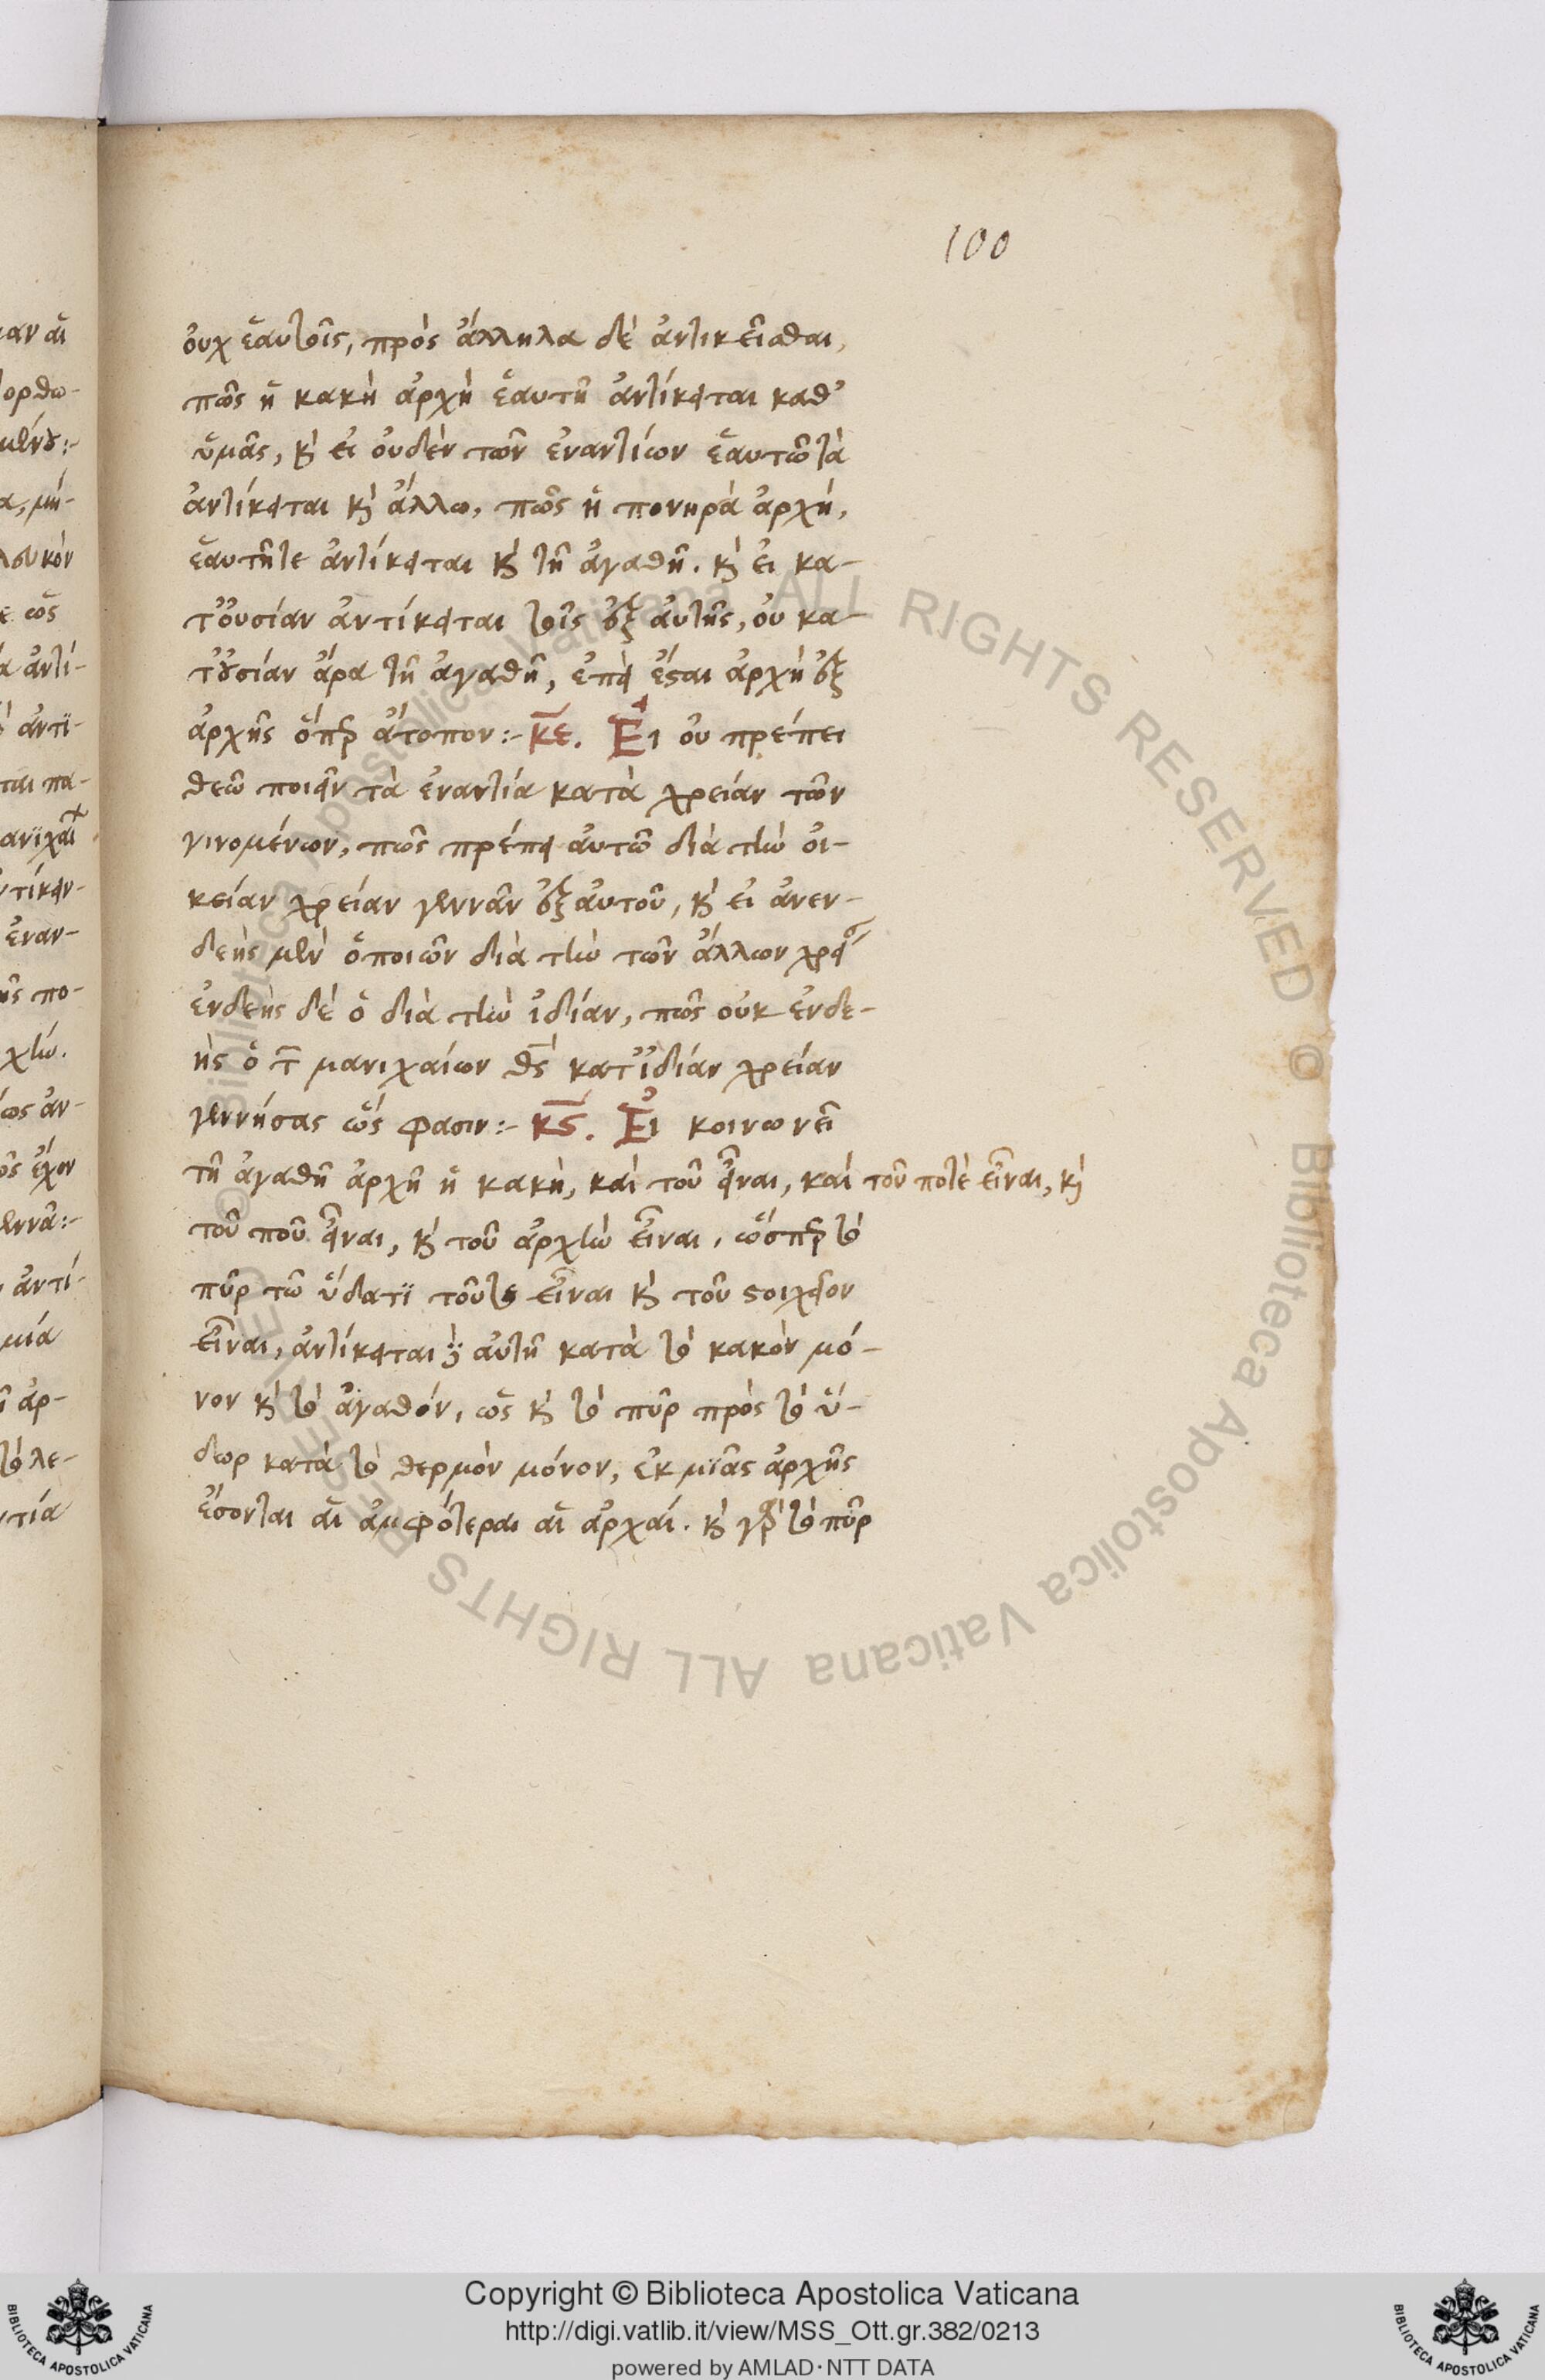 100
οὐχ ἑαυτοῖς, πρὸς ἄλληλα δὲ ἀντικεῖσθαι,
πῶς ἡ κακὴ ἀρχὴ ἑαυτῆ ἀντίκειται καθ’
ὑμᾶς, κὶ εἰ οὐδὲν τῶν ἐναντίων ἑαυτῶ τὰ
ἀντίκειται κὶ ἄλλω, πῶς ἡ πονηρὰ ἀρχή,
ἑαυτῆτε ἀντίκειται κὶ τῆ ἀγαθῆ. κὶ εἰ κα-
τ’οὐσίαν ἀντίκειται τοῖς ἐξ αὐτῆς, οὐ κα-
τ’οὐσίαν ἄρα τῆ ἀγαθῆ, ἐπεὶ ἔσται ἀρχὴ ἐξ
ἀρχῆς ὅπερ ἄτοπον:- κε. Εἰ οὐ πρέπει
θεῶ ποιεῖν τὰ ἐναντία κατὰ χρείαν τῶν
γινομένων, πῶς πρέπει αὐτῶ διὰ τὴν οἰ-
κείαν χρείαν γεννᾶν ἐξ αὐτοῦ, κὶ εἰ ἀνεν-
δεὴς μὲν ὁ ποιῶν διὰ τὴν τῶν ἄλλων
ἐνδεὴς δὲ ὁ διὰ τὴν ἰδίαν, πῶς οὐκ ἐνδε-
ὴς ὁ τ μανιχαίων θς κατ’ἰδίαν χρείαν
γεννήσας ὥς φασιν:- κς. Εἰ κοινωνεῖ
τῆ ἀγαθῆ ἀρχῆ ἡ κακὴ, καὶ τοῦ εἶναι, καὶ τοῦ ποτὲ εἶναι, κὶ
τοῦ ποῦ εἶναι, κὶ τοῦ ἀρχὴν εἶναι, ὥσπερ τὸ
πῦρ τῶ ὕδατϊ τοῦτο εἶναι κὶ τοῦ στοιχεῖον
εἶναι, ἀντίκειται δὲ αὐτῆ κατὰ τὸ κακὸν μό-
νον κὶ τὸ ἀγαθόν, ὡς κὶ τὸ πῦρ πρὸς τὸ ὕ-
δωρ κατὰ τὸ θερμὸν μόνον, ἐκ μϊᾶς ἀρχῆς
ἔσονται αἱ ἀμφότεραι αἱ ἀρχαί. κὶ γὰρ τὸ πῦρ
Copyright © Biblioteca Apostolica Vaticana
http://digi.vatlib.it/view/MSS_Ott.gr.382/0213
powered by AMLAD·NTT DATA